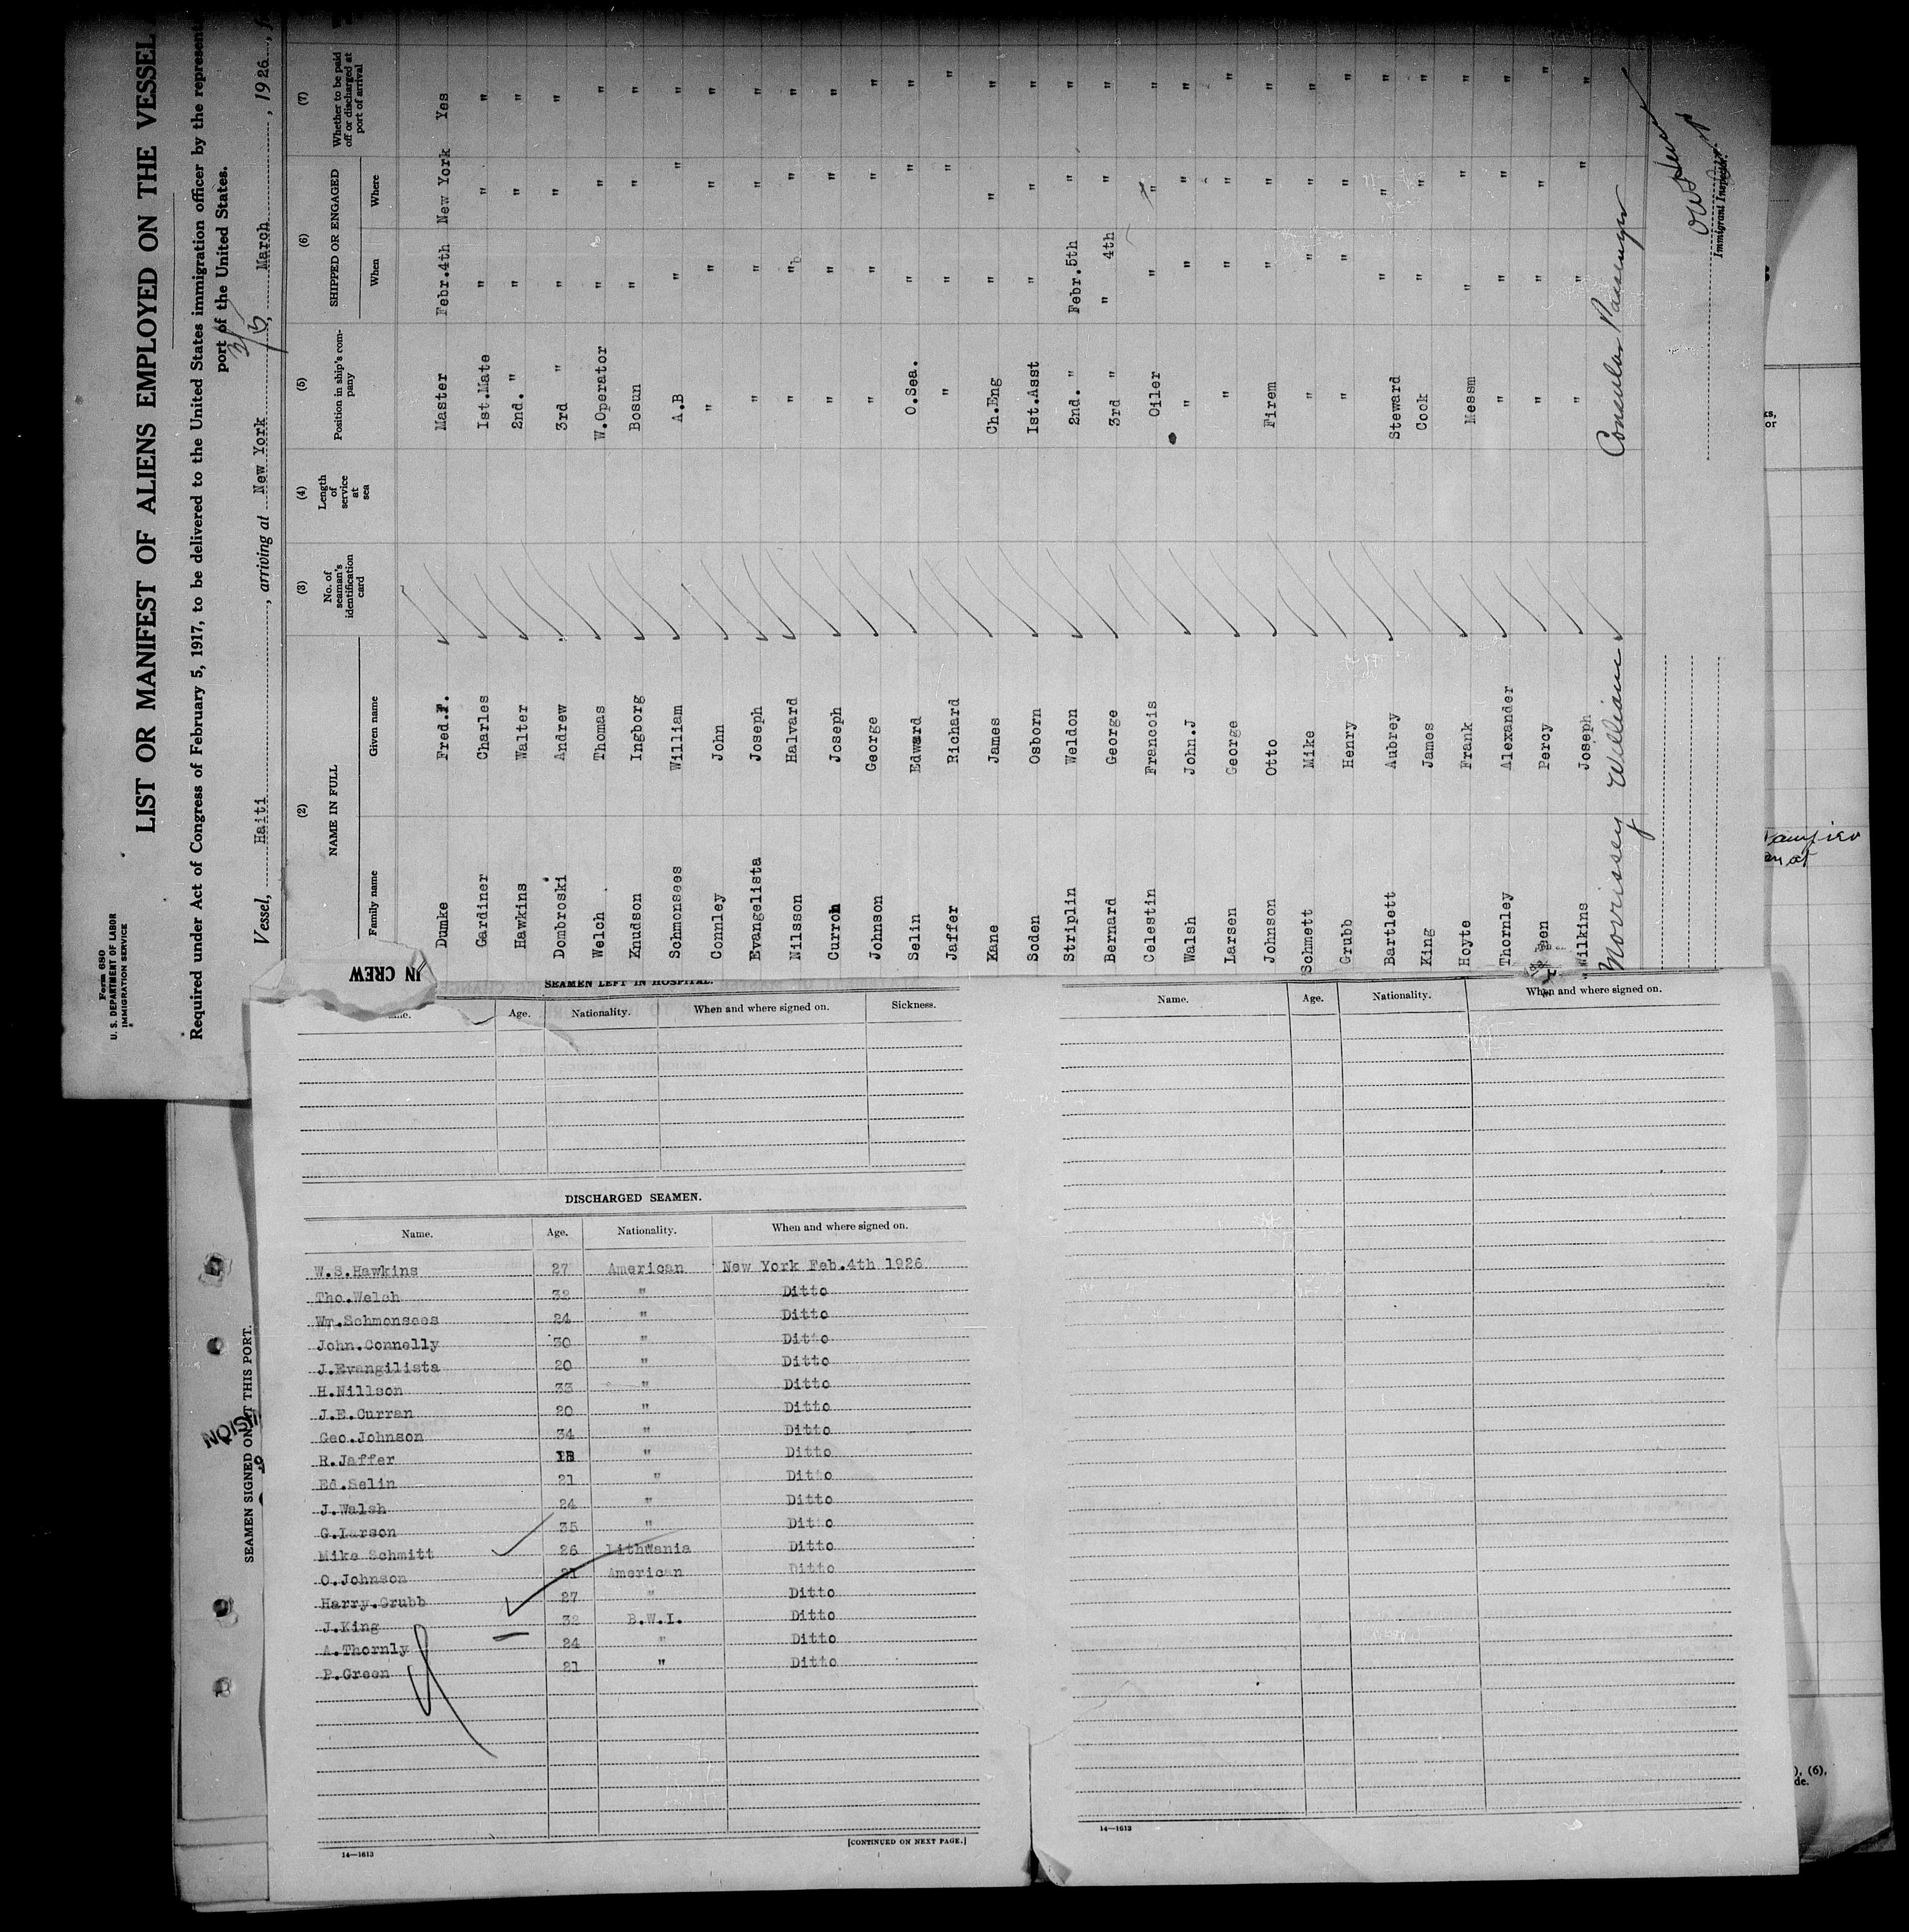 Form 680
U. S. DEPARTMENT OF LABOR
IMMIGRATION SERVICE
LIST OR MANIFEST OF ALIENS EMPLOYED ON THE VESSEL
Required under Act of Congress of February 5, 1917, to be delivered to the United States immigration officer by the represent
port of the United States.
Vessel, Haiti, arriving at New York, March, 1926,
3/5
(2) (3) (4) (5) (6) (7)
NAME IN FULL No. of seaman's identification card Length of service at sea Position in ship's com-pany SHIPPED OR ENGAGED Whether to be paid off or discharged at port of arrival
Family name Given name When Where
Dumke Fred.F. Master Febr.4th New York Yes
Gardiner Charles 1st.Mate " " "
Hawkins Walter 2nd. " " " "
Dombroski Andrew 3rd " " " "
Welch Thomas W.Operator " " "
Knudson Ingborg Bosun " " "
Schmonsees William A.B " " "
Connley John " " " "
Evangelista Joseph " " " "
Nilsson Halvard " " " "
Curron Joseph " " " "
Johnson George " " " "
Selin Edward O.Sea. " " "
Jaffer Richard " " " "
Kane James Ch.Eng " " "
Soden Osborn 1st.Asst " " "
Striplin Weldon 2nd. " Febr.5th " "
Bernard George 3rd " " 4th " "
Celestin Francois Oiler " " "
Walsh John.J " " " "
Larsen George " " " "
Johnson Otto Firem " " "
Schmett Mike " " " "
Grubb Henry " " " "
Bartlett Aubrey Steward " " "
King James Cook " " "
Hoyte Frank Messm " " "
Thornley Alexander " " " "
Percy " " " "
Wilkins Joseph " " " "
Morrissey William Consular Passenger
Immigrant Inspector.
IN CREW
SEAMEN LEFT IN HOSPITAL.
Age. Nationality. When and where signed on. Sickness.
DISCHARGED SEAMEN.
Name. Age. Nationality. When and where signed on.
W.S.Hawkins 27 American New York Feb.4th 1926
Tho.Welch 32 " Ditto
Wm.Schmonsees 24 " Ditto
John.Connelly 30 " Ditto
J.Evangilista 20 " Ditto
H.Nillson 33 " Ditto
J.E.Curran 20 " Ditto
Geo.Johnson 34 " Ditto
R.Jaffer " Ditto
Ed.Selin 21 " Ditto
J.Walsh 24 " Ditto
G.Larson 35 " Ditto
Mike Schmitt 26 Lithuania Ditto
O.Johnson 21 American Ditto
Harry.Grubb 27 " Ditto
J.King 32 B.W.I. Ditto
A.Thornly 24 " Ditto
P.Green 21 " Ditto
[CONTINUED ON NEXT PAGE.]
14—1613
Name. Age. Nationality. When and where signed on.
14—1613
SEAMEN SIGNED ON AT THIS PORT.
), (6),
de.